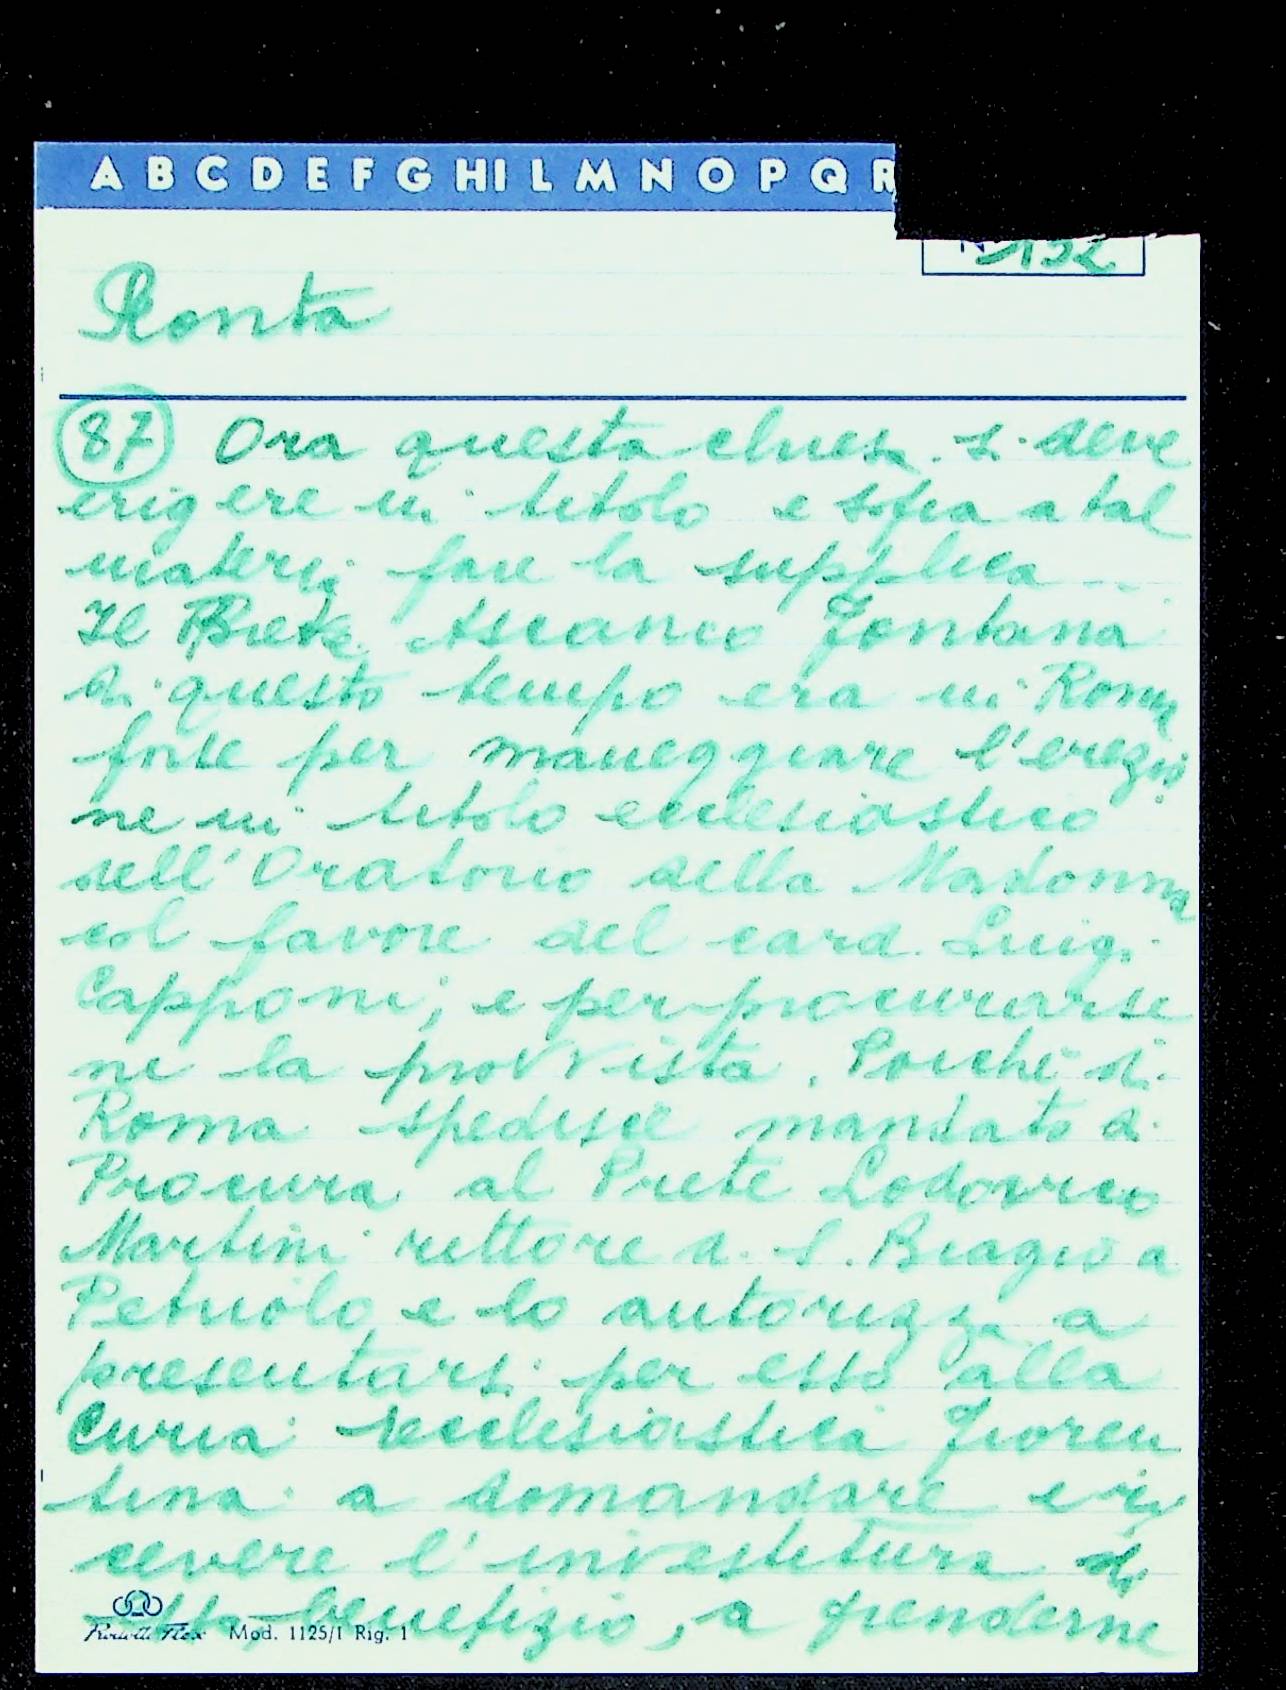 A B C D E F G H I L M N O P Q R
N. 132
Ronta
87 Ora questa chiesa si deve
erigere in titolo e si fa a tal
materia fare la supplica ...
Il Prete Ascanio Fontana
di questo tempo era in Roma
forse per maneggiare l'erezio
ne in titolo ecclesiastico
dell'Oratorio della Madonna
col favore del card. Luigi
Capponi; e per procurarse
ne la provvista. Poiché di
Roma spedisce mandato di
Procura al Prete Lodovico
Martini rettore di S. Biagio a
Petriolo e lo autorizza a
presentarsi per esso alla
Curia ecclesiastica Fioren
tina a domandare e ri
cevere l'investitura di
detto benefizio, a prenderne
Mod. 1125/1 Rig. 1